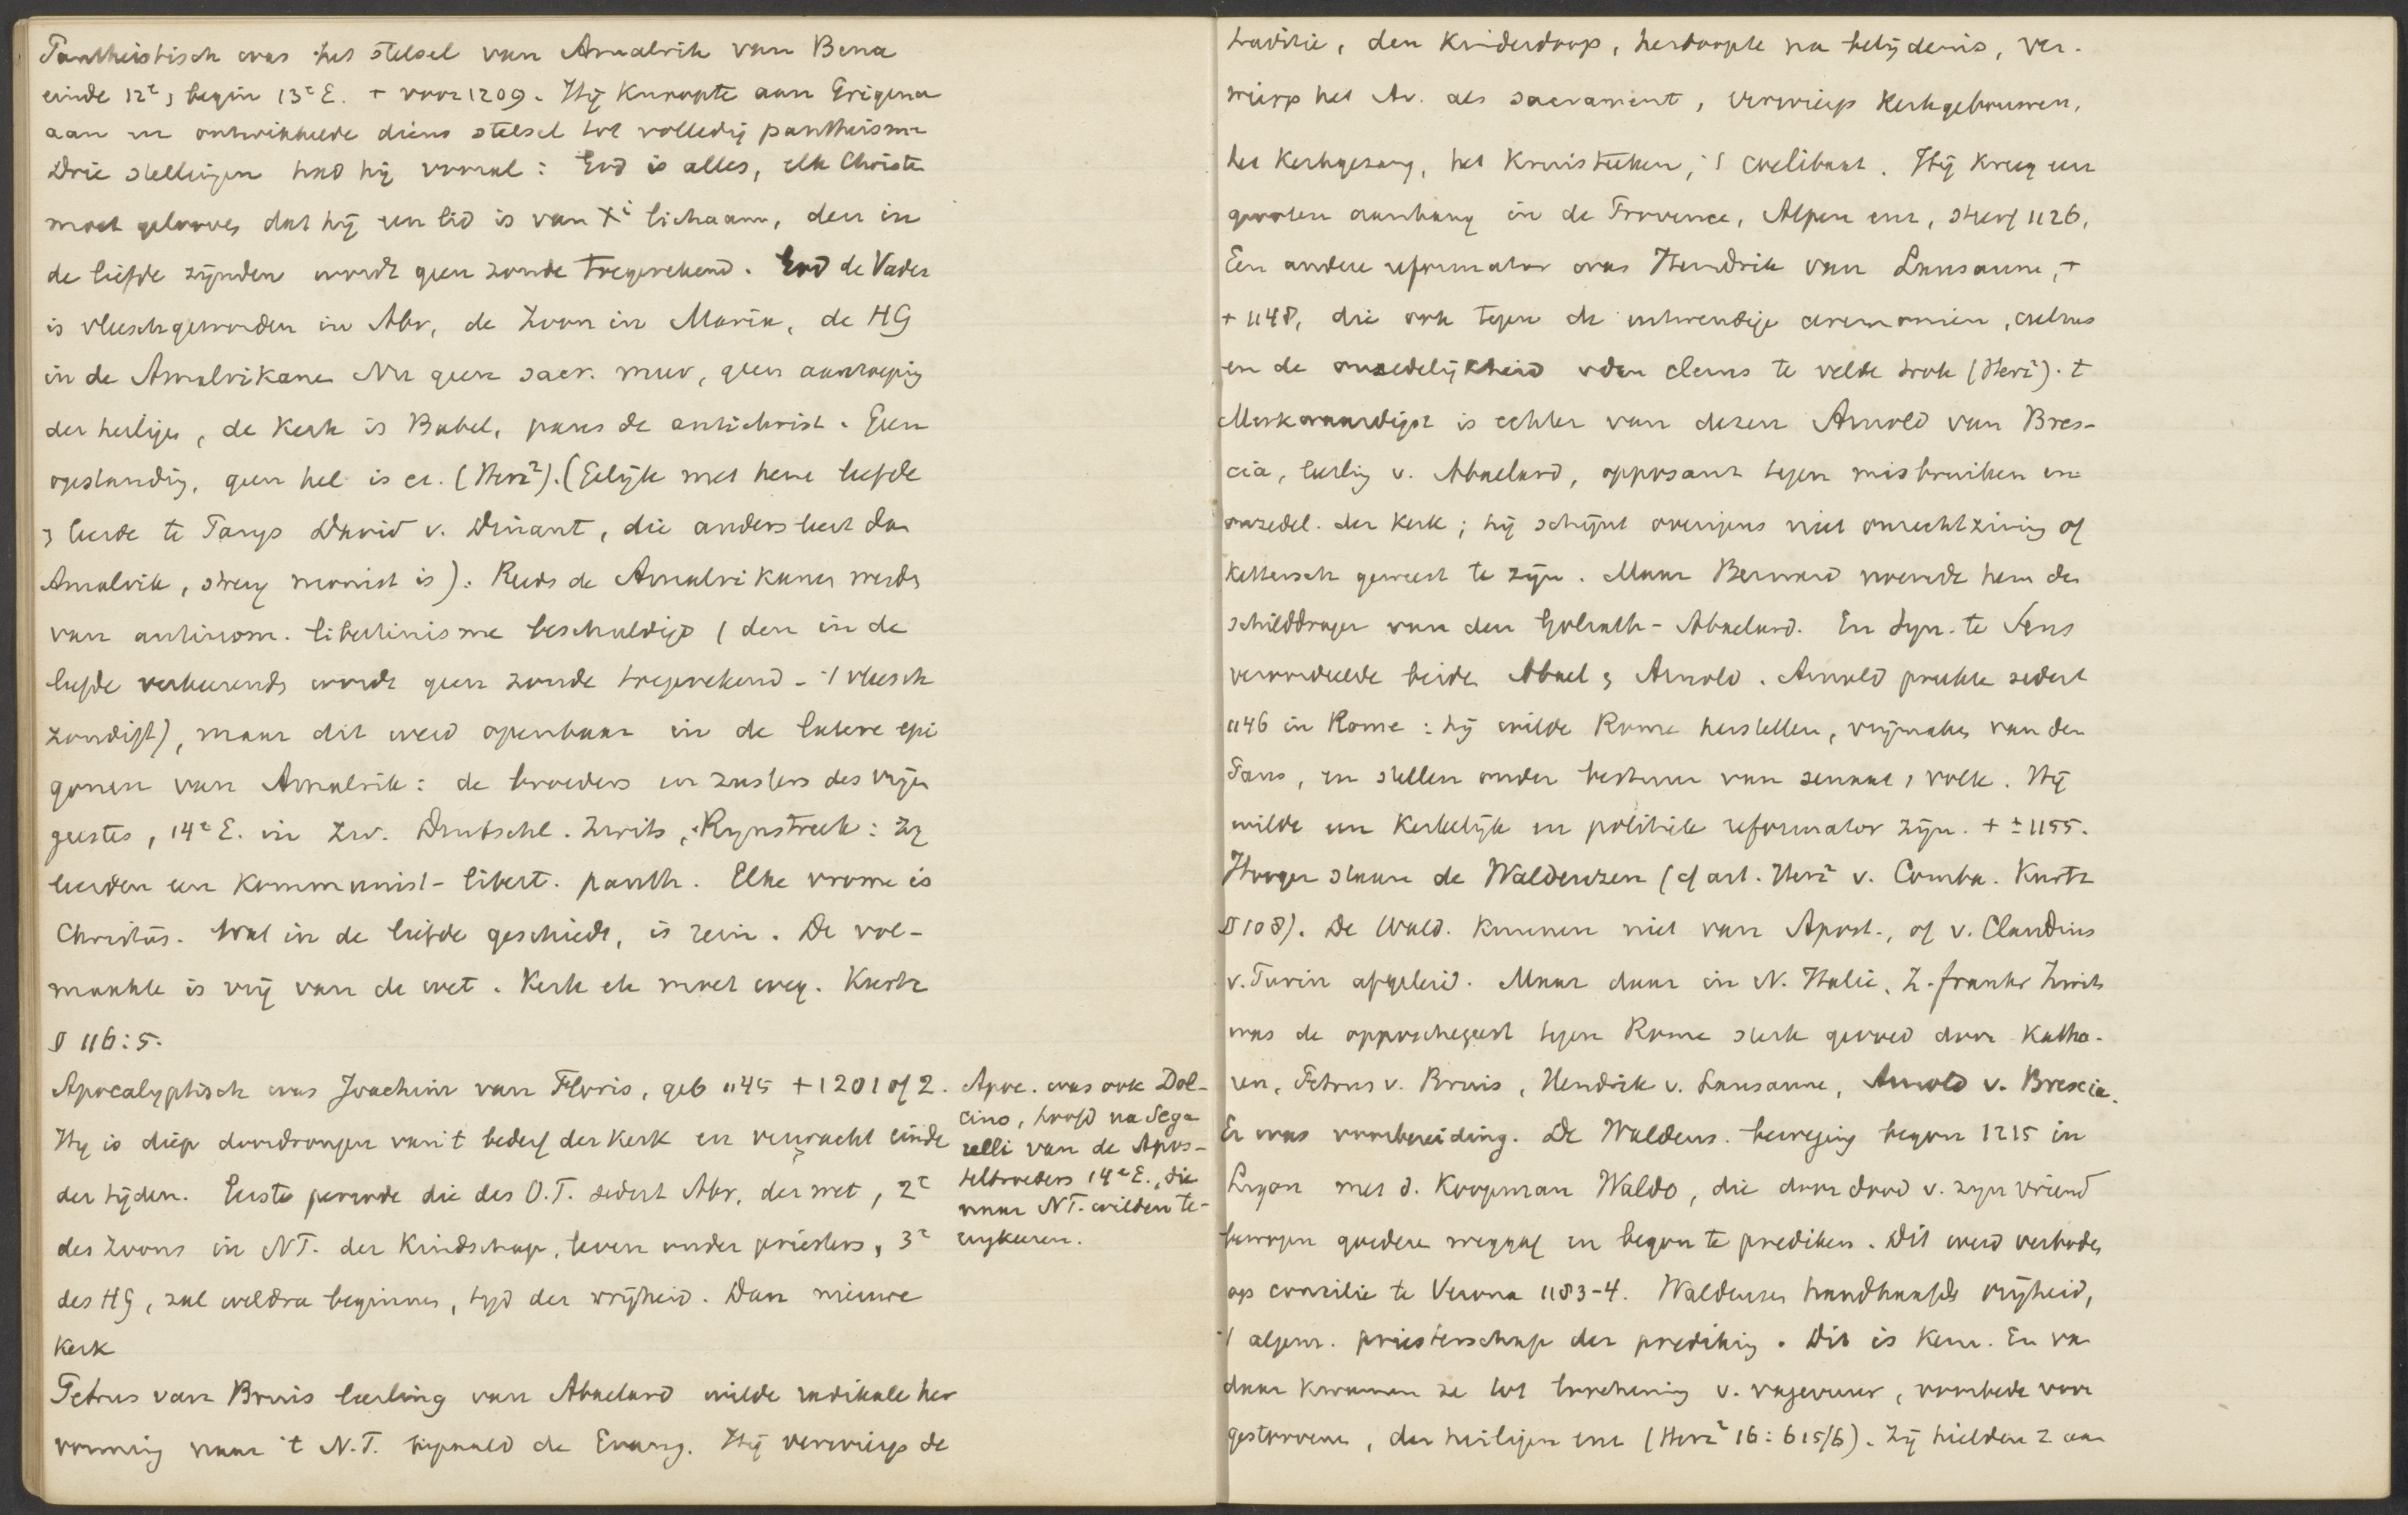 Pantheistisch was het stelsel van Amalrik van Bena
einde 12e, begin 13e E. + voor 1209. Hij knoopte aan Erigena
aan en ontwikkelde diens stelsel tot volledig pantheisme
Drie stellingen had hij vooral: God is alles, elk Christen
moet gelooven dat hij een lid is van Xi lichaam, den in
de liefde zijnden wordt geen zonde toegerekend. God de Vader
is vleeschgeworden in Abr, de Zoon in Maria, de HG
in de Amalrikanen Nu geen sacr. meer, geen aanroeping
der heiligen, de Kerk is Babel, paus de antichrist. Geen
opstanding, geen hel is er. (Herz2). (Gelijk met hem leefde
en leerde te Parijs David v. Dinant, die anders leert dan
Amalrik, streng monist is). Reeds de Amalrikanen werden
van antinom. libertinisme beschuldigd (den in de
liefde verkeerende wordt geen zonde toegerekend - 't vleesch
zondigt), maar dit werd openbaar in de latere epi
gonen van Amalrik: de broeders en zusters des vrijen
geestes, 14e E. in Zw. Duitschl. Zwits, Rijnstreek: Zij
leerden een kommunist-libert. panth. Elke vrome is
Christus. Wat in de liefde geschiedt, is rein. De vol-
maakte is vrij van de wet. Kerk etc moet weg. Kurtz
§ 116:5.
Apocalyptisch was Joachim van Floris, geb 1145 + 1201 of 2.
Hij is diep doordrongen van 't bederf der kerk en verwacht einde
der tijden. Eerste periode die des O.T. sedert Abr, der wet, 2e
des Zoons in NT. der Kindschap, leven onder priesters, 3e
des HG, zal weldra beginnen, tijd der vrijheid. Dan nieuwe
Kerk
Petrus van Bruis leerling van Abaelard wilde radikale her
vorming naar 't N.T. bepaald de Evang. Hij verwierp de
Apoc. was ook Dol-
cino, hoofd na Sega
relli van de Apos-
telbroeders 14e E., die
naar NT. wilden te-
rugkeeren.
traditie, den Kinderdoop, herdoopte na belijdenis, ver-
wierp het Av. als sacrament, verwierp Kerkgebouwen,
het Kerkgezang, het Kruisteeken, 't coelibaat. Hij kreeg een
grooten aanhang in de Provence, Alpen enz, stierf 1126.
Een andere reformator was Hendrik van Lausanne, +
+ 1148, die ook tegen de uitwendige ceremonien, cultus
en de onzedelijkheid v den clerus te velde trok (Herz2). +
Merkwaardigst is echter van dezen Arnold van Bres-
cia, leerling v. Abaelard, opposant tegen misbruiken en
onzedel. der Kerk; hij schijnt overigens niet onrechtzinnig of
kettersch geweest te zijn. Maar Bernard noemde hem den
schilddrager van den Goliath-Abaelard. En Syn. te Sens
veroordeelde beide Abael en Arnold. Arnold preekte sedert
1146 in Rome: hij wilde Rome herstellen, vrijmaken van den
Paus, en stellen onder bestuur van senaat, volk. Hij
wilde een Kerkelijk en politiek reformator zijn. + ± 1155.
Hooger staan de Waldenzen (cf art. Herz2 v. Comba. Kurtz
§ 108). De Wald. kunnen niet van Apost., of v. Claudius
v. Turin afgeleid. Maar daar in N. Italie, Z. frankr Zwits
was de oppositiegeest tegen Rome sterk gevoed door Katha-
ren, Petrus v. Bruis, Hendrik v. Lausanne, Arnold v. Brescia.
Er was voorbereiding. De Waldens. beweging begon 1215 in
Lyon met d. Koopman Waldo, die door dood v. zijn vriend
bewogen goederen weggaf en begon te prediken. Dit werd verboden
op concilie te Verona 1183-4. Waldenzen handhaafden vrijheid,
't algem. priesterschap der prediking. Dit is kern. En van
daar kwamen ze tot loochening v. vagevuur, voorbede voor
gestorvenen, der heiligen enz (Herz2 16: 615/6). Zij hielden z aan